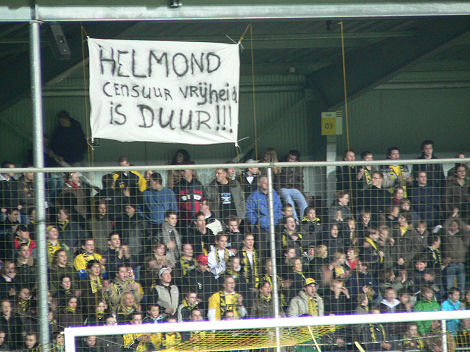 HELMOND
CENSUUR VRijheid
iS DUUR!!!
03